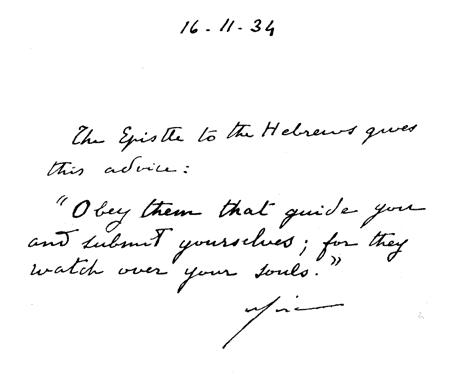 16-11-34
The Epistle to the Hebrews gives
this advice:
"Obey them that guide you
and submit yourselves; for they
watch over your souls."